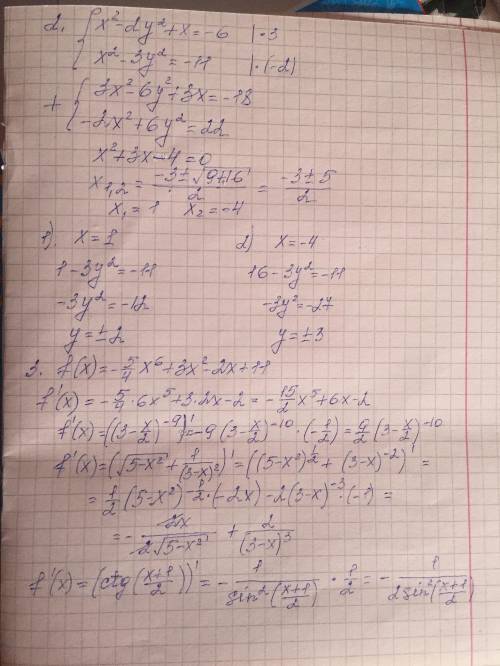 2. { x² - 2y² + x = -6 | ·3
x² - 3y² = -11 | ·(-2)
+ { 3x² - 6y² + 3x = -18
-2x² + 6y² = 22
x² + 3x - 4 = 0
x₁,₂ = (-3 ± √(9+16))/2 = (-3 ± 5)/2
x₁ = 1 x₂ = -4
1). x = 1 2) x = -4
1 - 3y² = -11 16 - 3y² = -11
-3y² = -12 -3y² = -27
y = ±2 y = ±3
3. f(x) = -5/4 x⁶ + 3x² - 2x + 11
f'(x) = -5/4 · 6x⁵ + 3·2x - 2 = -15/2 x⁵ + 6x - 2
f'(x) = ((3 - x/2)⁻⁹)' = -9(3 - x/2)⁻¹⁰ · (-1/2) = 9/2 (3 - x/2)⁻¹⁰
f'(x) = (√(5-x²) + 1/(3-x)²)' = ((5-x²)^(1/2) + (3-x)⁻²)' =
= 1/2 (5-x²)^(-1/2) · (-2x) - 2(3-x)⁻³ · (-1) =
= - 2x/(2√(5-x²)) + 2/(3-x)³
f'(x) = (ctg((x+1)/2))' = - 1/sin²((x+1)/2) · 1/2 = - 1/(2sin²((x+1)/2))